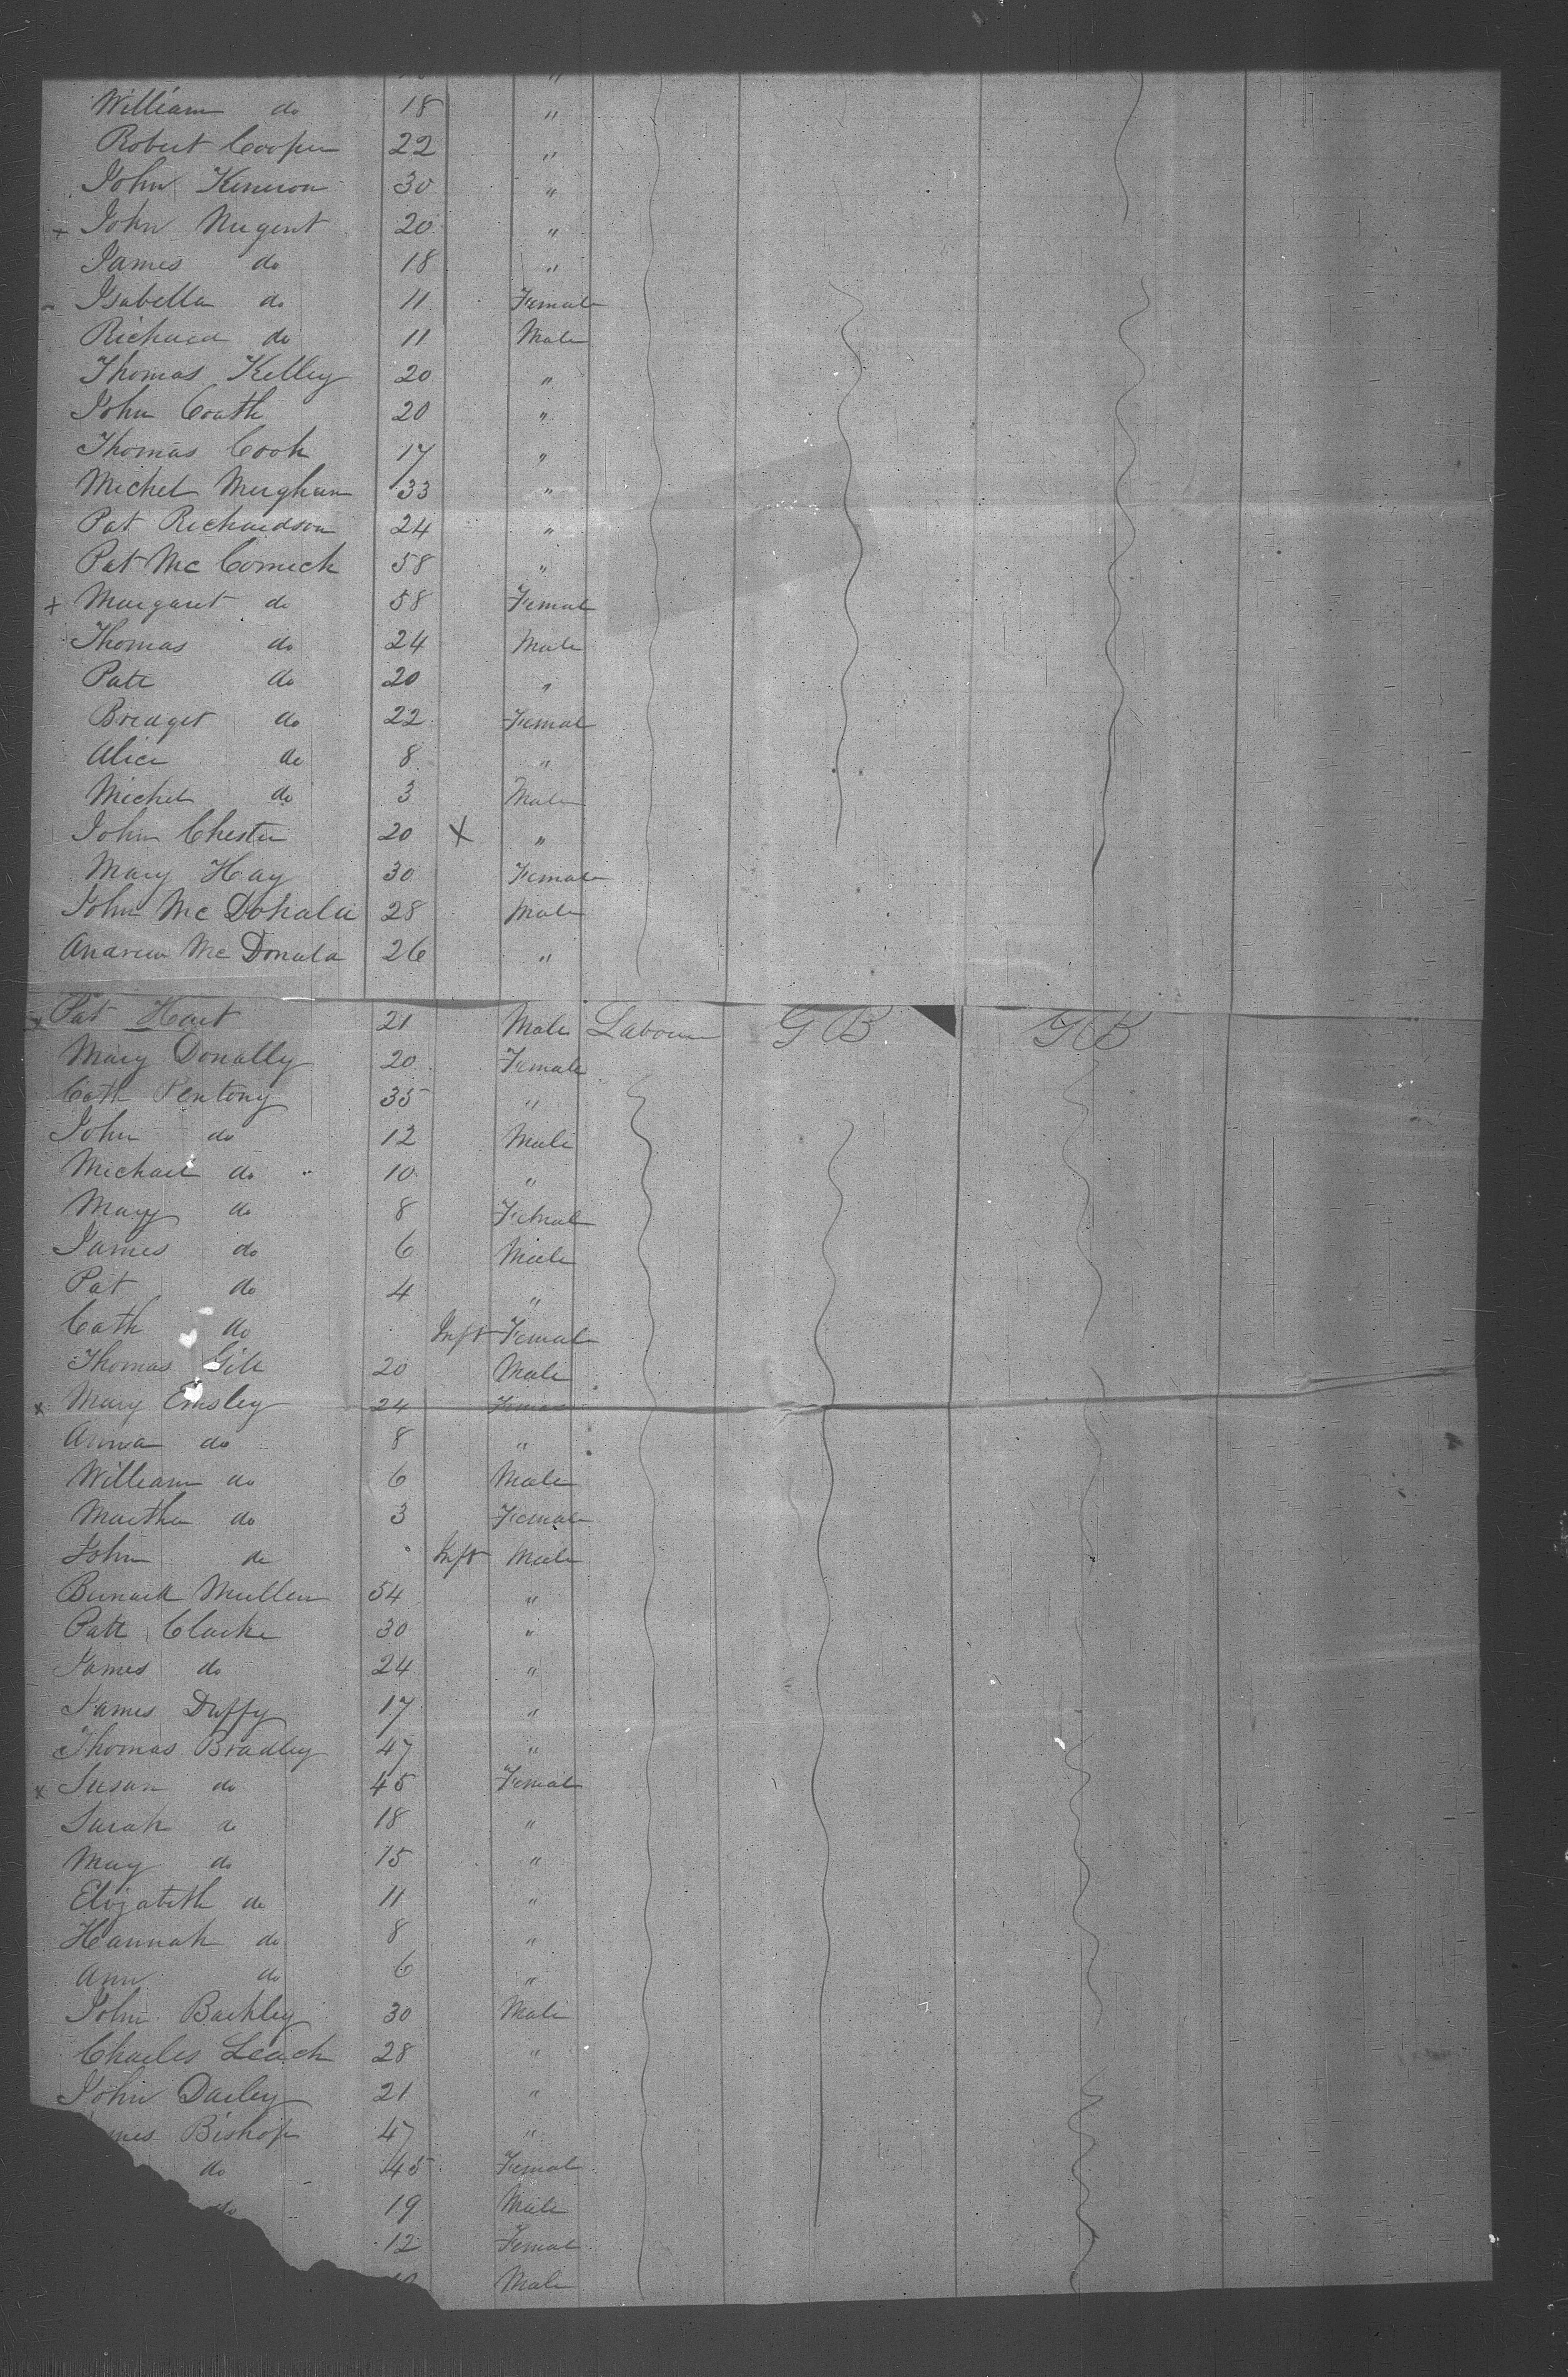 William do 18 "
Robert Cooper 22 "
John Kennon 30 "
x John Nugent 20 "
James do 18 "
Isabella do 11 Female
Richard do 11 Male
Thomas Kelley 20 "
John Coath 20 "
Thomas Cook 17 "
Michel Meighan 33 "
Pat Richardson 24 "
Pat Mc Cormick 58 "
x Margaret do 58 Female
Thomas do 24 Male
Patt do 20 "
Bridget do 22 Female
Alice do 8 "
Michel do 3 Male
John Chester 20 x "
Mary Hay 30 Female
John Mc Donald 28 Male
Andrew Mc Donald 26 "
x Pat Hart 21 Male Labour G B G B
Mary Donally 20 Female
Cath Pentony 35 "
John do 12 Male
Michael do 10 "
Mary do 8 Female
James do 6 Male
Pat do 4 "
Cath do Inft Female
Thomas Gill 20 Male
x Mary Emsley 24 Female
Anna do 8 "
William do 6 Male
Martha do 3 Female
John do Inft Male
Bernard Mullen 54 "
Patt Clarke 30 "
James do 24 "
James Duffy 17 "
Thomas Bradley 47 "
x Susan do 45 Female
Sarah do 18 "
Mary do 15 "
Elizabeth do 11 "
Hannah do 8 "
Ann do 6 "
John Barkley 30 Male
Charles Leach 28 "
John Darley 21 "
mes Bishop 47 "
do 45 Female
do 19 Male
12 Female
Male